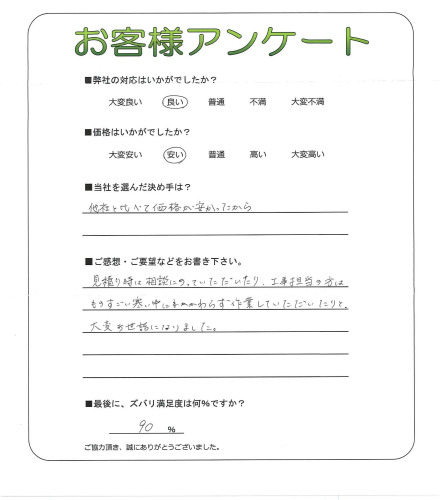 お客様アンケート
■弊社の対応はいかがでしたか？
大変良い 良い 普通 不満 大変不満
■価格はいかがでしたか？
大変安い 安い 普通 高い 大変高い
■当社を選んだ決め手は？
他社と比べて価格が安かったから
■ご感想・ご要望などをお書き下さい。
見積り時は相談にのっていただいたり、工事担当の方は
ものすごい寒い中にもかかわらず作業していただいたりと、
大変お世話になりました。
■最後に、ズバリ満足度は何％ですか？
90 ％
ご協力頂き、誠にありがとうございました。